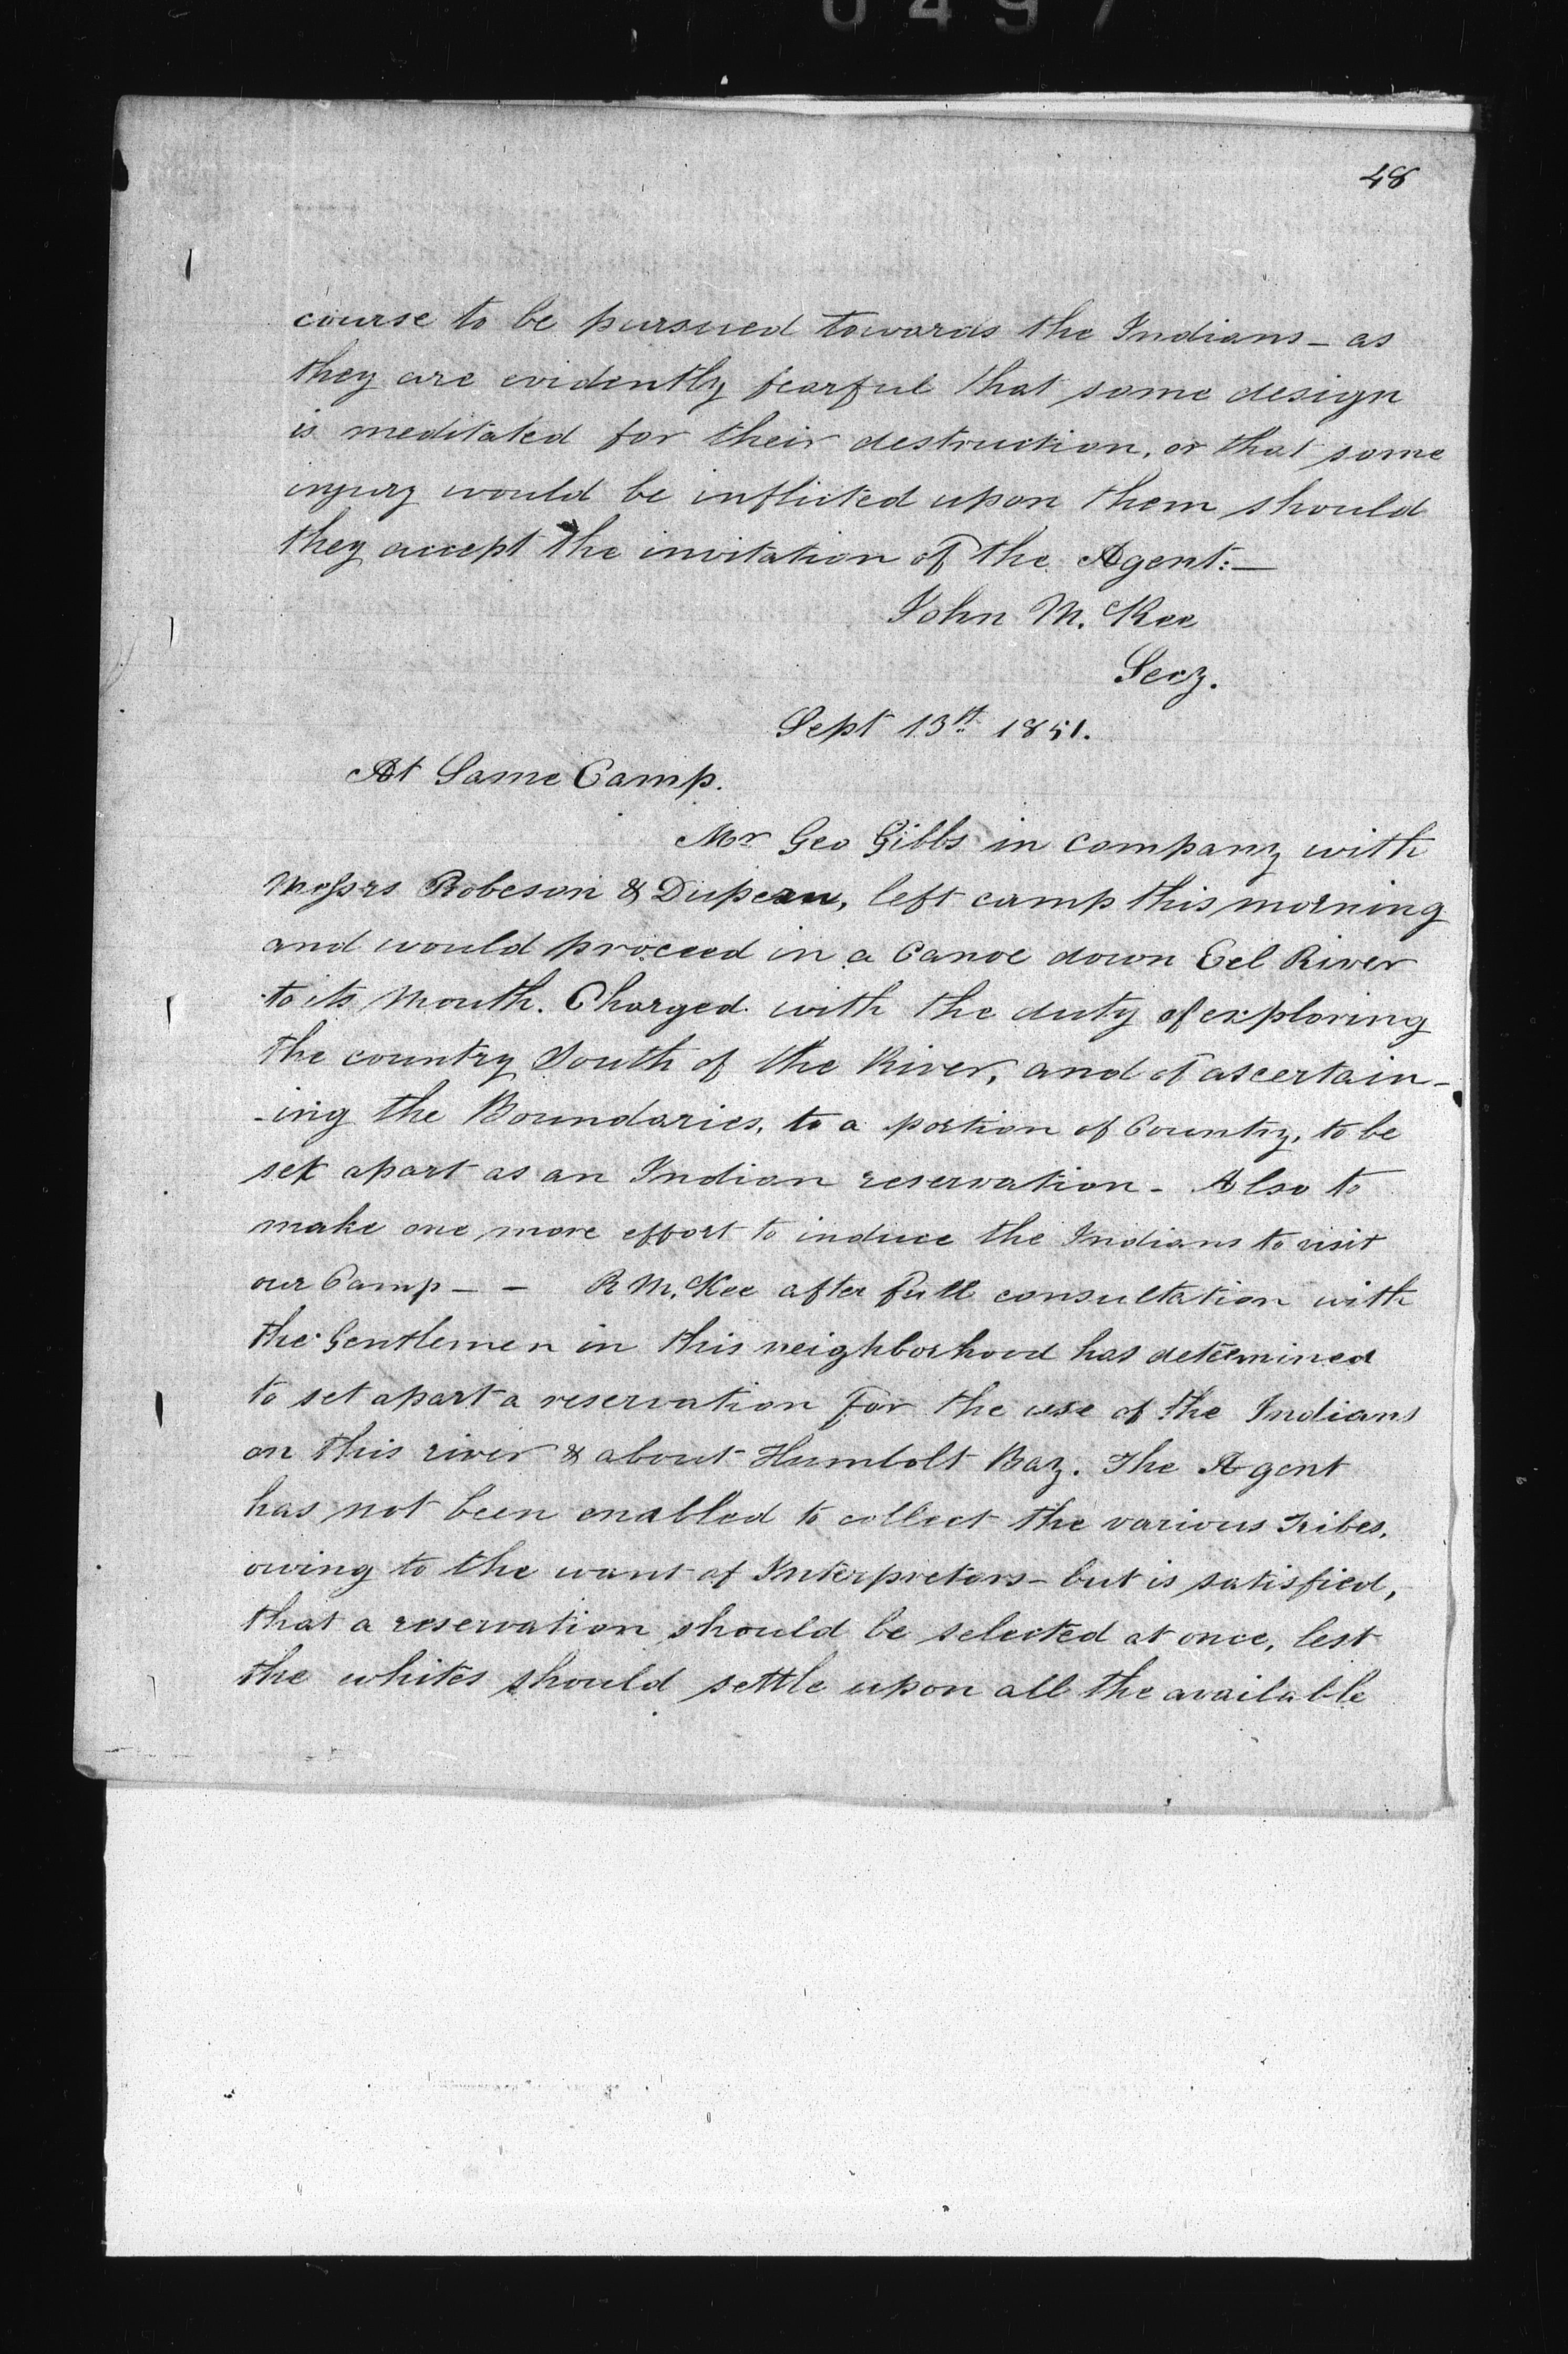 0497
48
course to be pursued towards the Indians - as
they are evidently fearful that some design
is meditated for their destruction, or that some
injury would be inflicted upon them should
they accept the invitation of the Agent:—
John McKee
Secy.
Sept 13th 1851.
At Same Camp.
Mr Geo Gibbs in company with
Messrs Robeson & Dupern, left camp this morning
and would proceed in a Canoe down Eel River
to its Mouth. Charged with the duty of exploring
the country South of the River, and of ascertain-
-ing the Boundaries, to a portion of Country, to be
set apart as an Indian reservation - Also to
make one more effort to induce the Indians to visit
our Camp - - R McKee after full consultation with
the Gentlemen in this neighborhood has determined
to set apart a reservation for the use of the Indians
on this river & about Humbolt Bay. The Agent
has not been enabled to collect the various Tribes,
owing to the want of Interpretors - but is satisfied,
that a reservation should be selected at once, lest
the whites should settle upon all the available